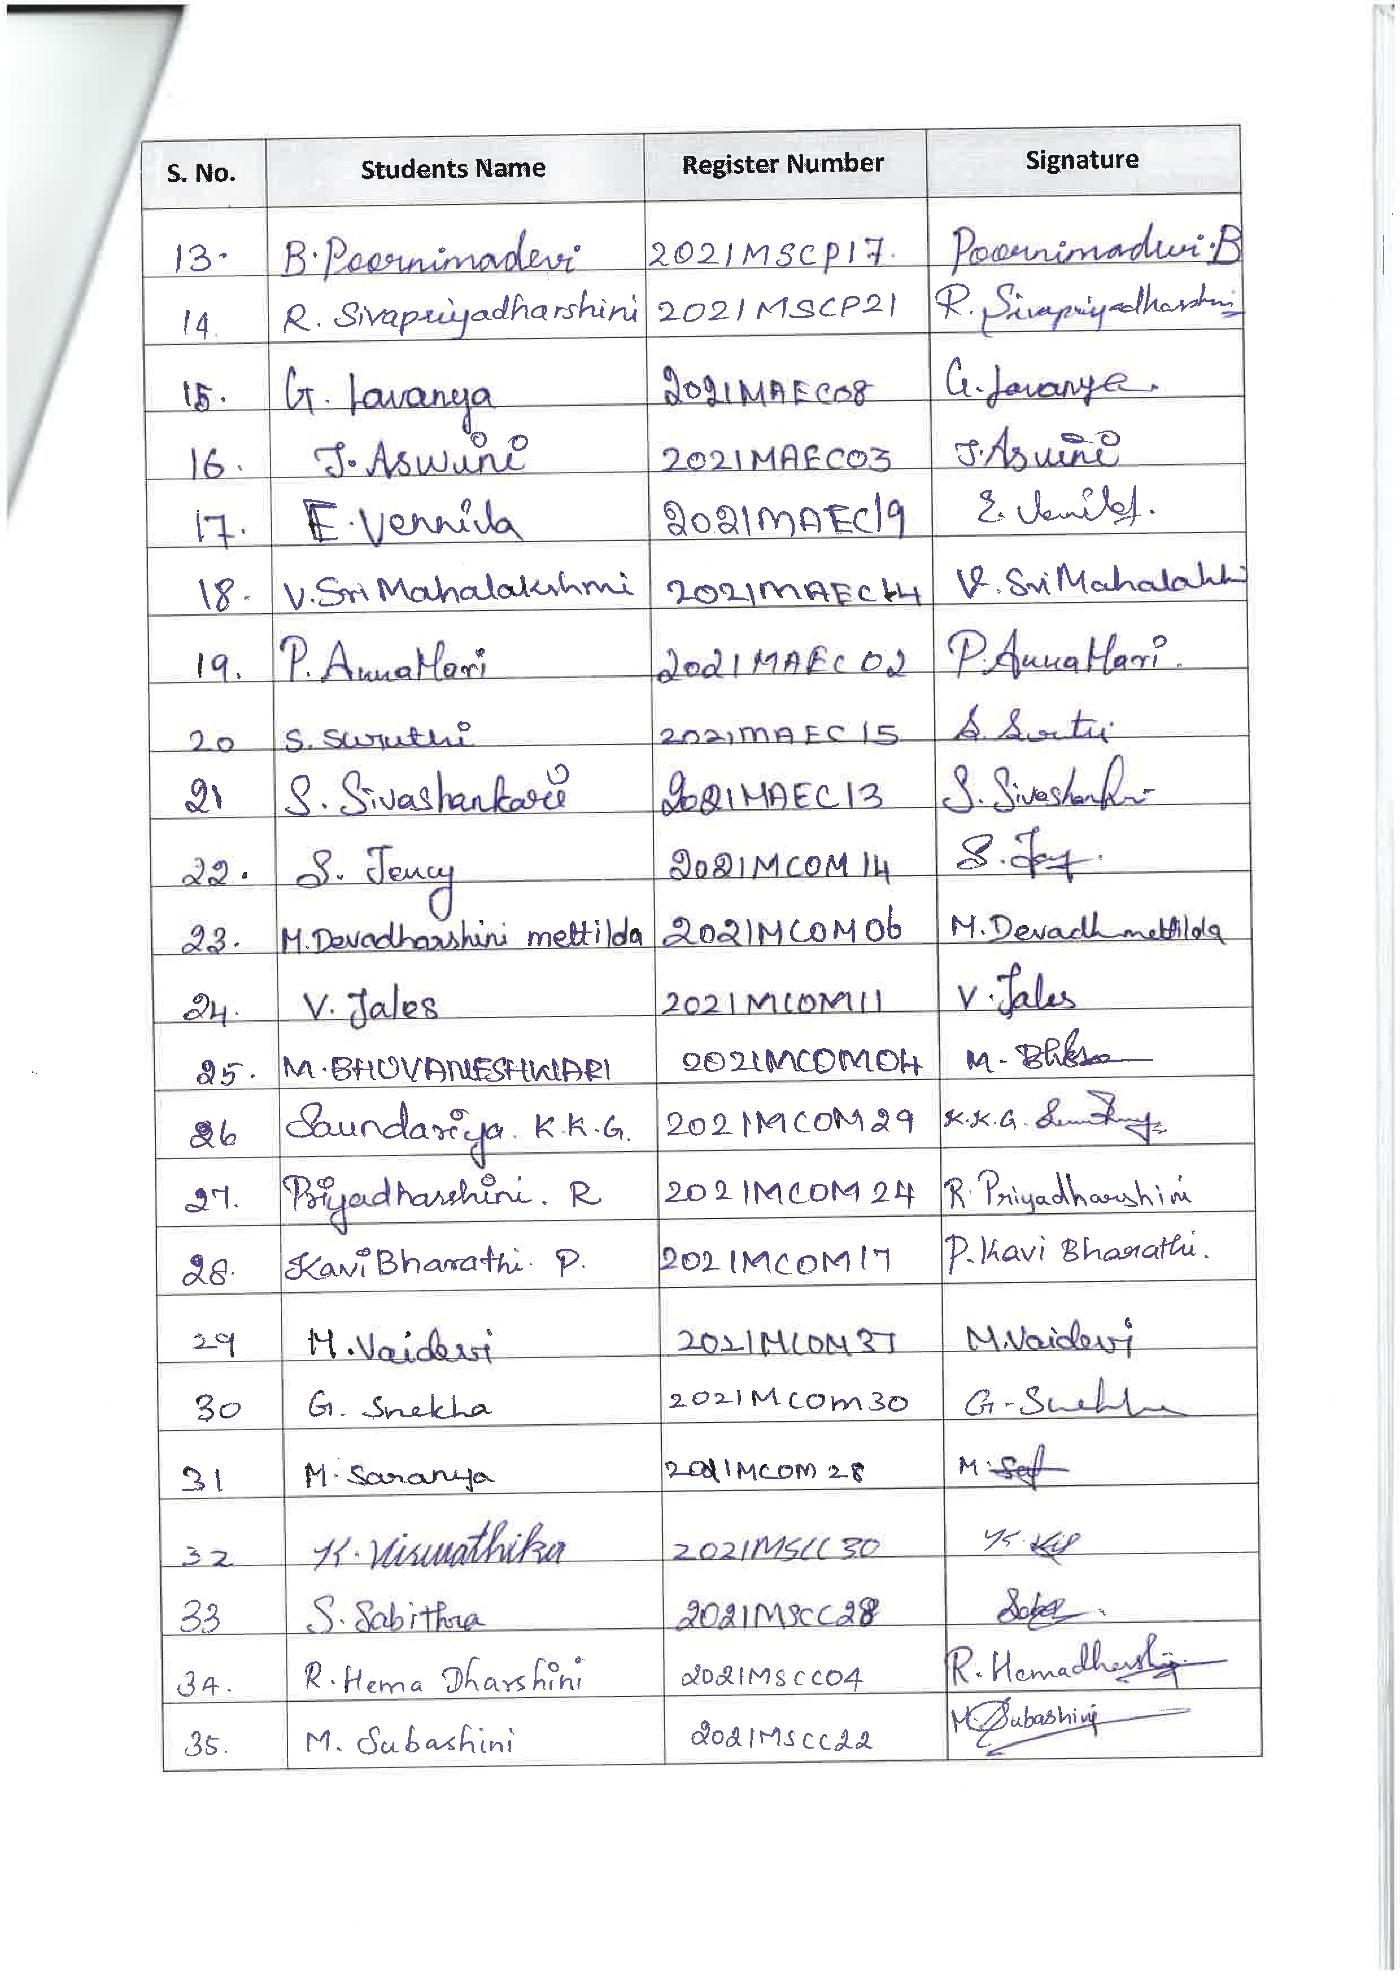 S. No. Students Name Register Number Signature
13. B. Poornimadevi 2021MSCP17. Poornimadevi.B
14. R. Sivapriyadharshini 2021MSCP21 R. Sivapriyadharshini
15. G. Lavanya 2021MAEC08 G. Lavanya.
16. J. Aswini 2021MAEC03 J. Aswini
17. E. Vennila 2021MAEC19 E.
18. V. Sri Mahalakshmi 2021MAEC14 V. Sri
19. P. AnnaMari 2021MAEC02 P. AnnaMari.
20 S. Suruthi 2021MAEC15 S.
21 S. Sivashankari 2021MAEC13 S.
22. S. Jency 2021MCOM14 S.
23. M. Devadharshini mettilda 2021MCOM06 M. Devadh mettilda
24. V. Jales 2021MCOM11 V. Jales
25. M. BHUVANESHWARI 2021MCOM04 M.
26 Saundariya. K.K.G. 2021MCOM29 K.K.G.
27. Priyadharshini. R 2021MCOM24 R. Priyadharshini
28. Kavi Bharathi. P. 2021MCOM17 P. Kavi Bharathi.
29 M. Vaidevi 2021MCOM37 M. Vaidevi
30 G. Snekha 2021MCom30 G.
31 M. Saranya 2021MCOM28 M.
32 K. Viswathika 2021MSCC30 K.
33 S. Sabithra 2021MSCC28
34. R. Hema Dharshini 2021MSCC04 R. Hemadharshini
35. M. Subashini 2021MSCC22 M. Subashini